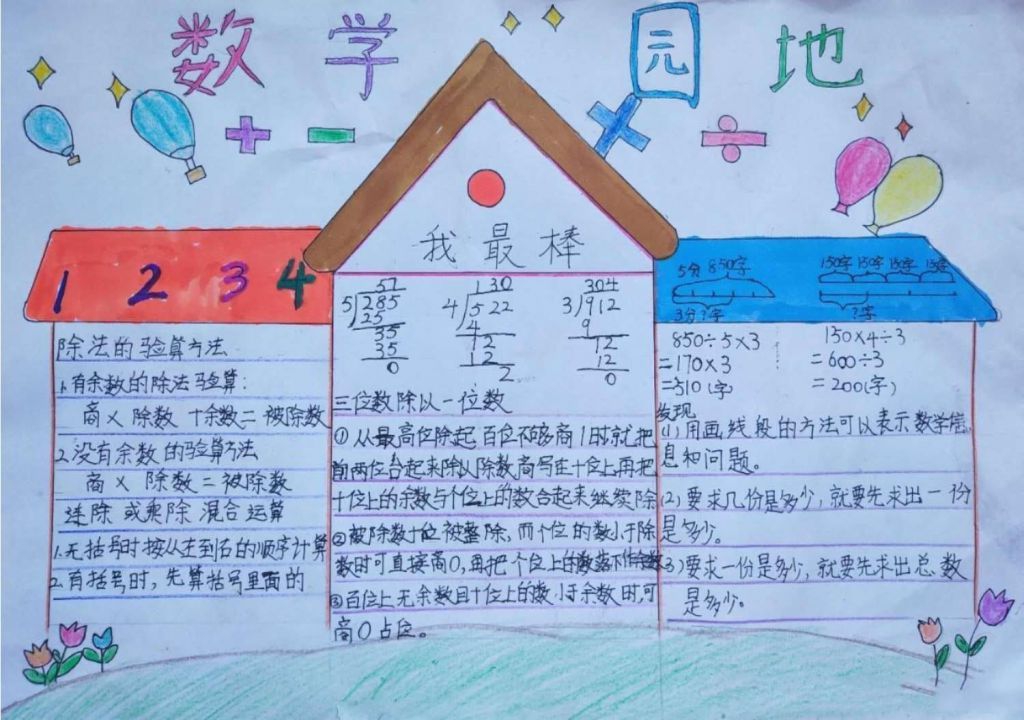 数学园地
+ - × ÷
我最棒
1 2 3 4
除法的验算方法
1.有余数的除法验算:
商×除数+余数=被除数
2.没有余数的验算方法
商×除数=被除数
连除或乘除混合运算
1.无括号时按从左到右的顺序计算
2.有括号时,先算括号里面的
57
5)285
25
35
35
0
130
4)522
4
12
12
2
304
3)912
9
12
12
0
三位数除以一位数
①从最高位除起百位不够商1时就把
前两位合起来除以除数商写在十位上再把
十位上的余数与个位上的数合起来继续除
②被除数十位被整除,而个位的数小于除
数时可直接商0,再把个位上的数落下作余数
③百位上无余数且十位上的数小于余数时,可
商0占位。
5分850字
3分?字
150字 150字 150字 150字
?字
850÷5×3
=170×3
=510(字)
150×4÷3
=600÷3
=200(字)
发现
(1)用画线段的方法可以表示数学信
息和问题。
(2)要求几份是多少,就要先求出一份
是多少。
(3)要求一份是多少,就要先求出总数
是多少。